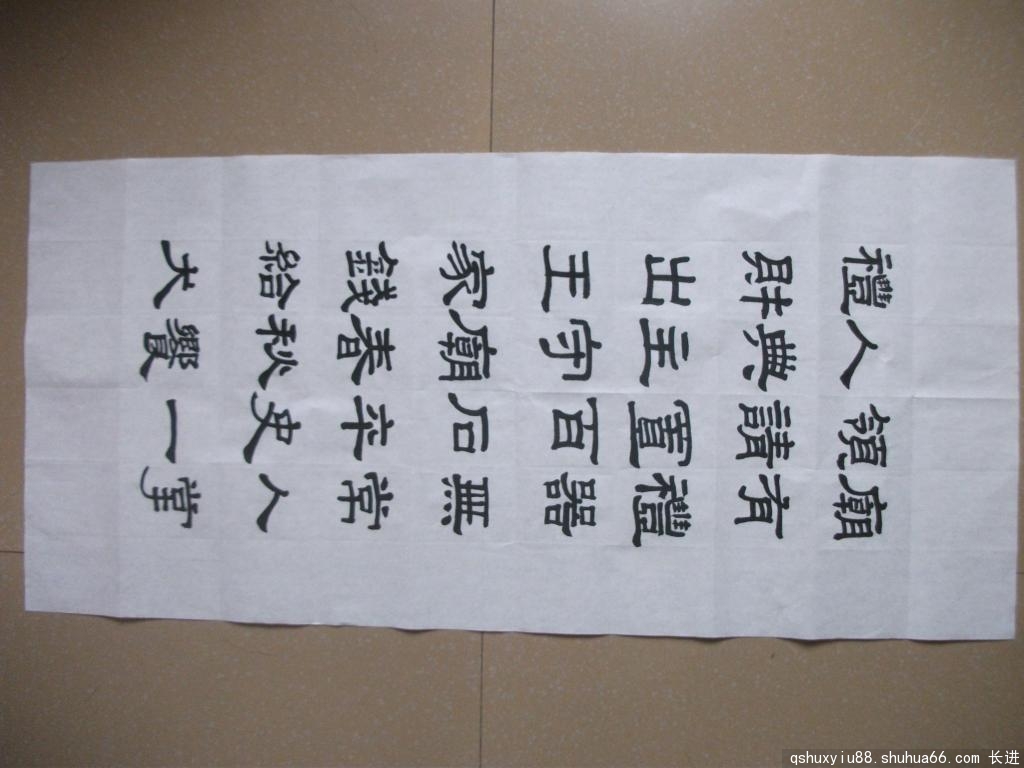 廟有禮器無常人掌
領請置百石卒史一
人典主守廟春秋饗
禮財出王家錢給大
qshuxyiu88.shuhua66.com 长进